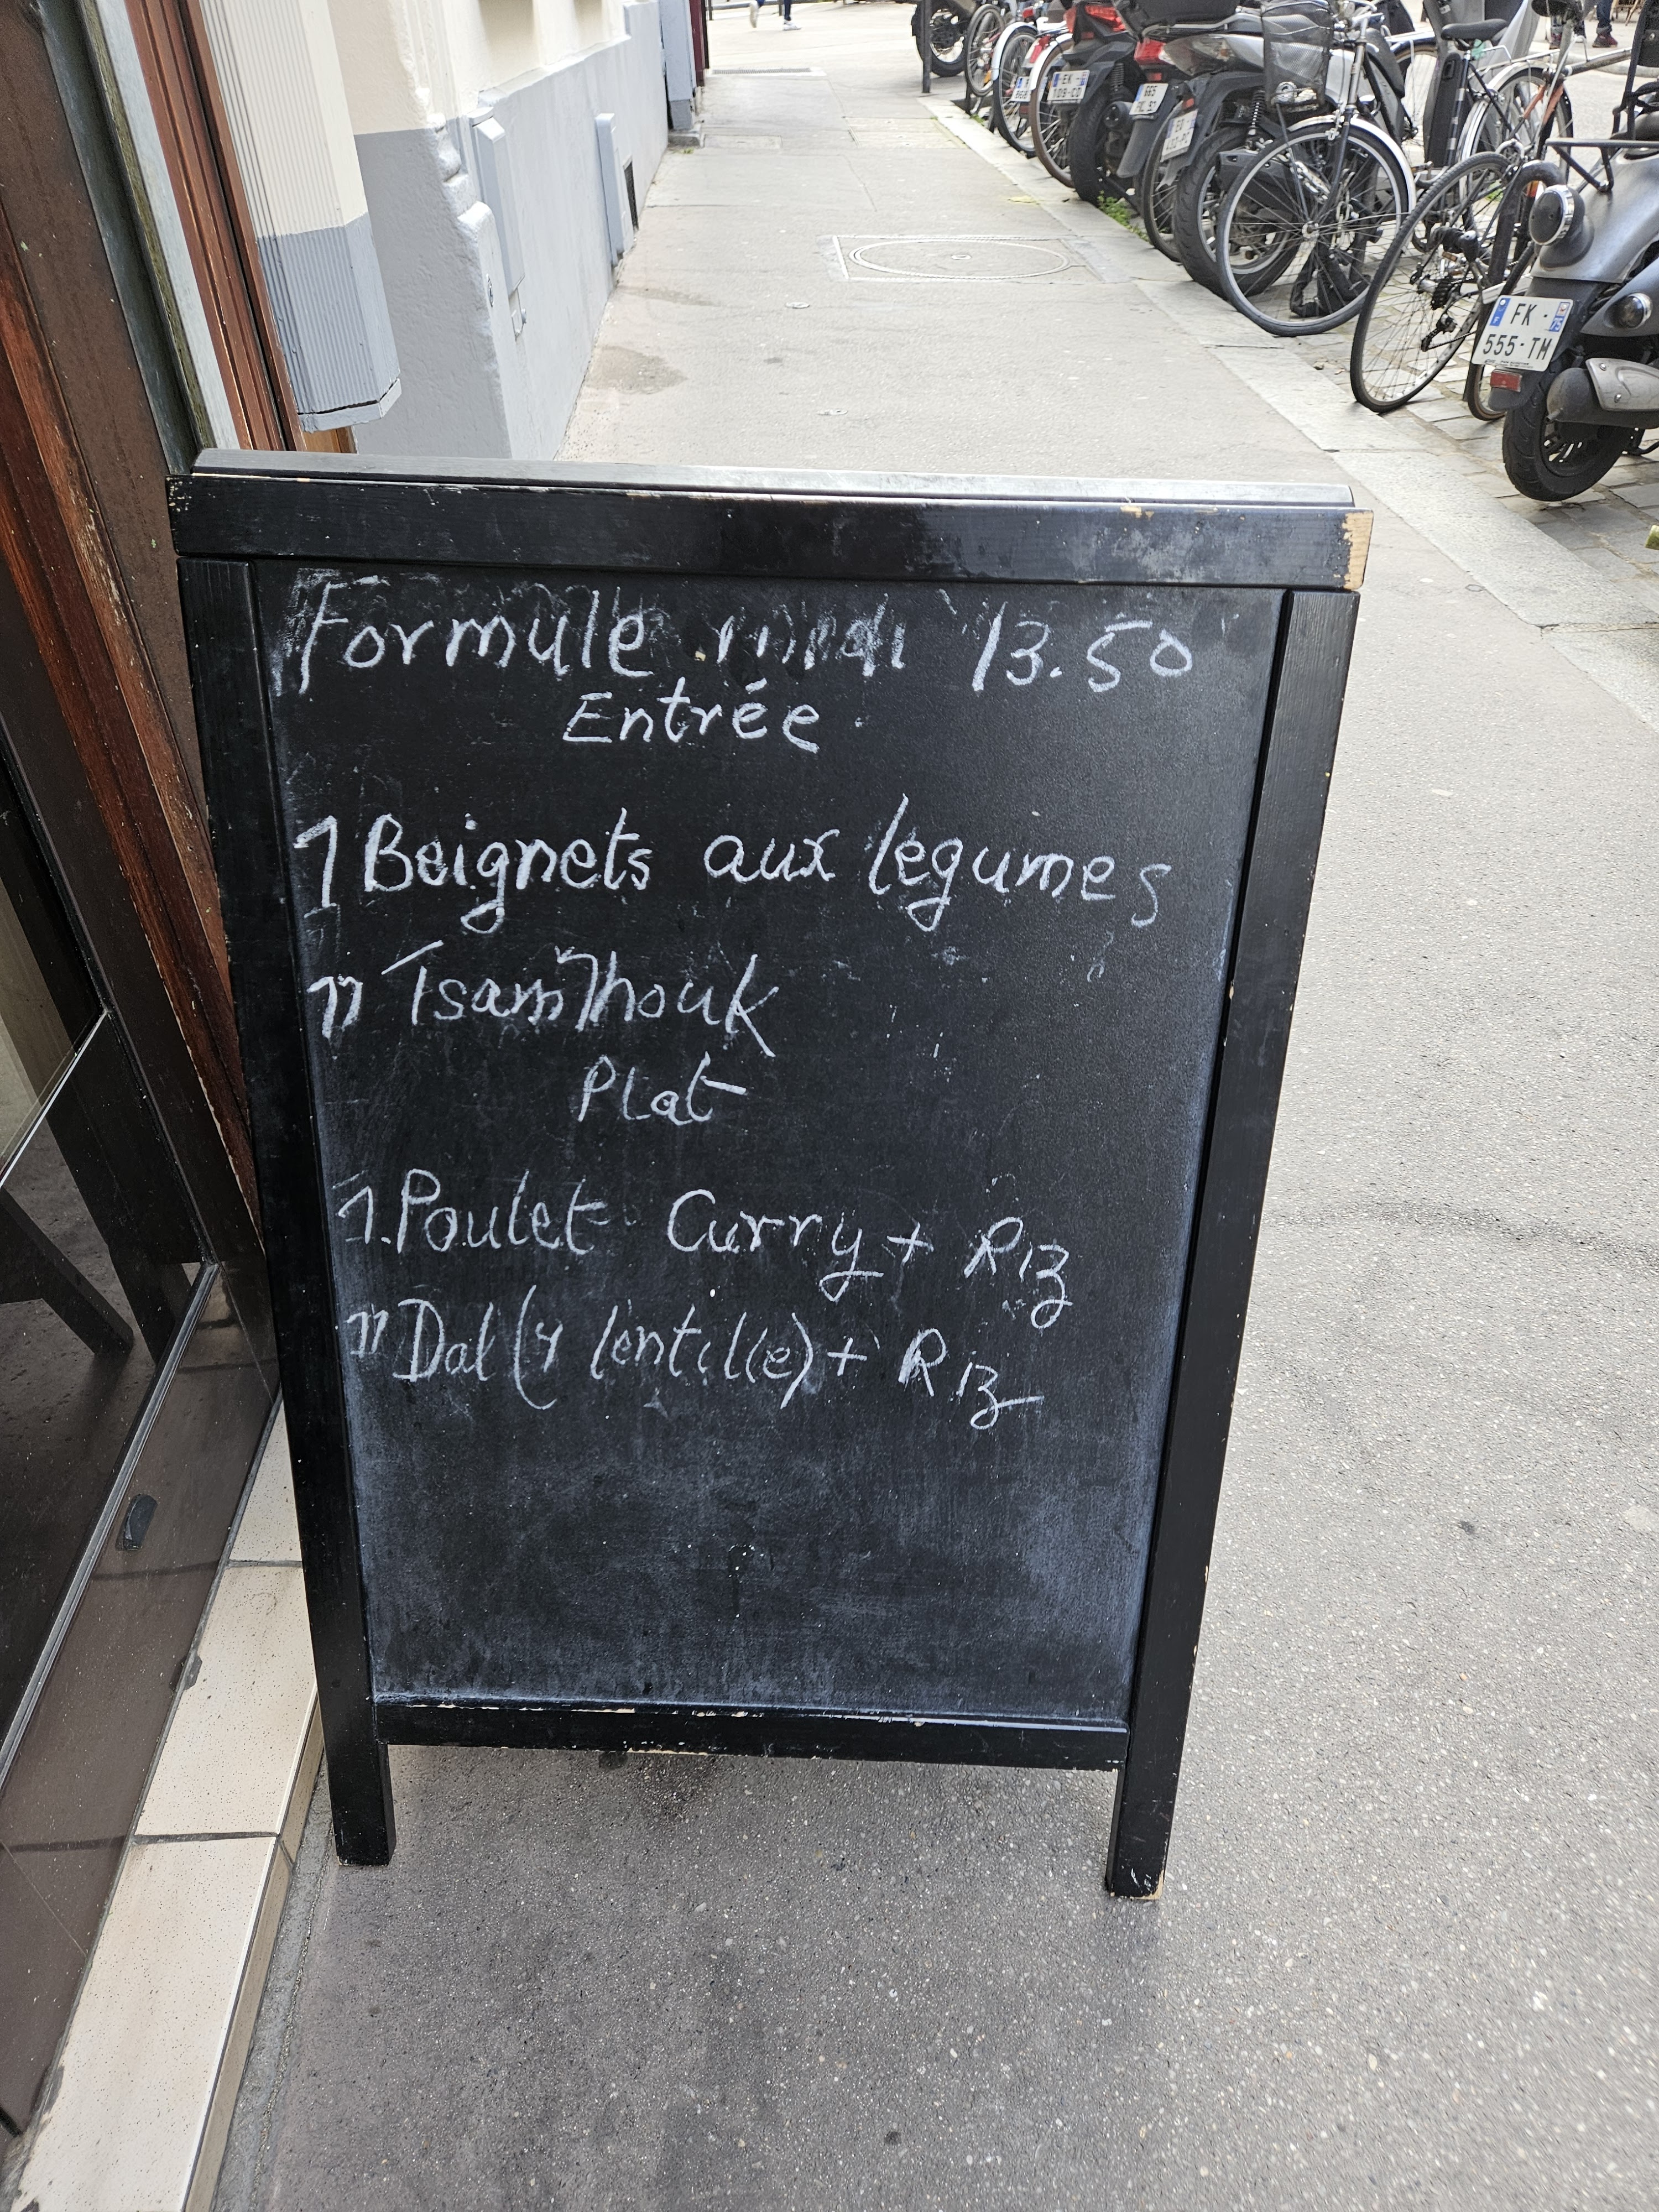 Formule midi 13.50
Entrée
1 Beignets aux légumes
11 TsamThouk
Plat
1. Poulet Curry + Riz
11 Dal (4 lentille) + Riz
FK-
555-TM